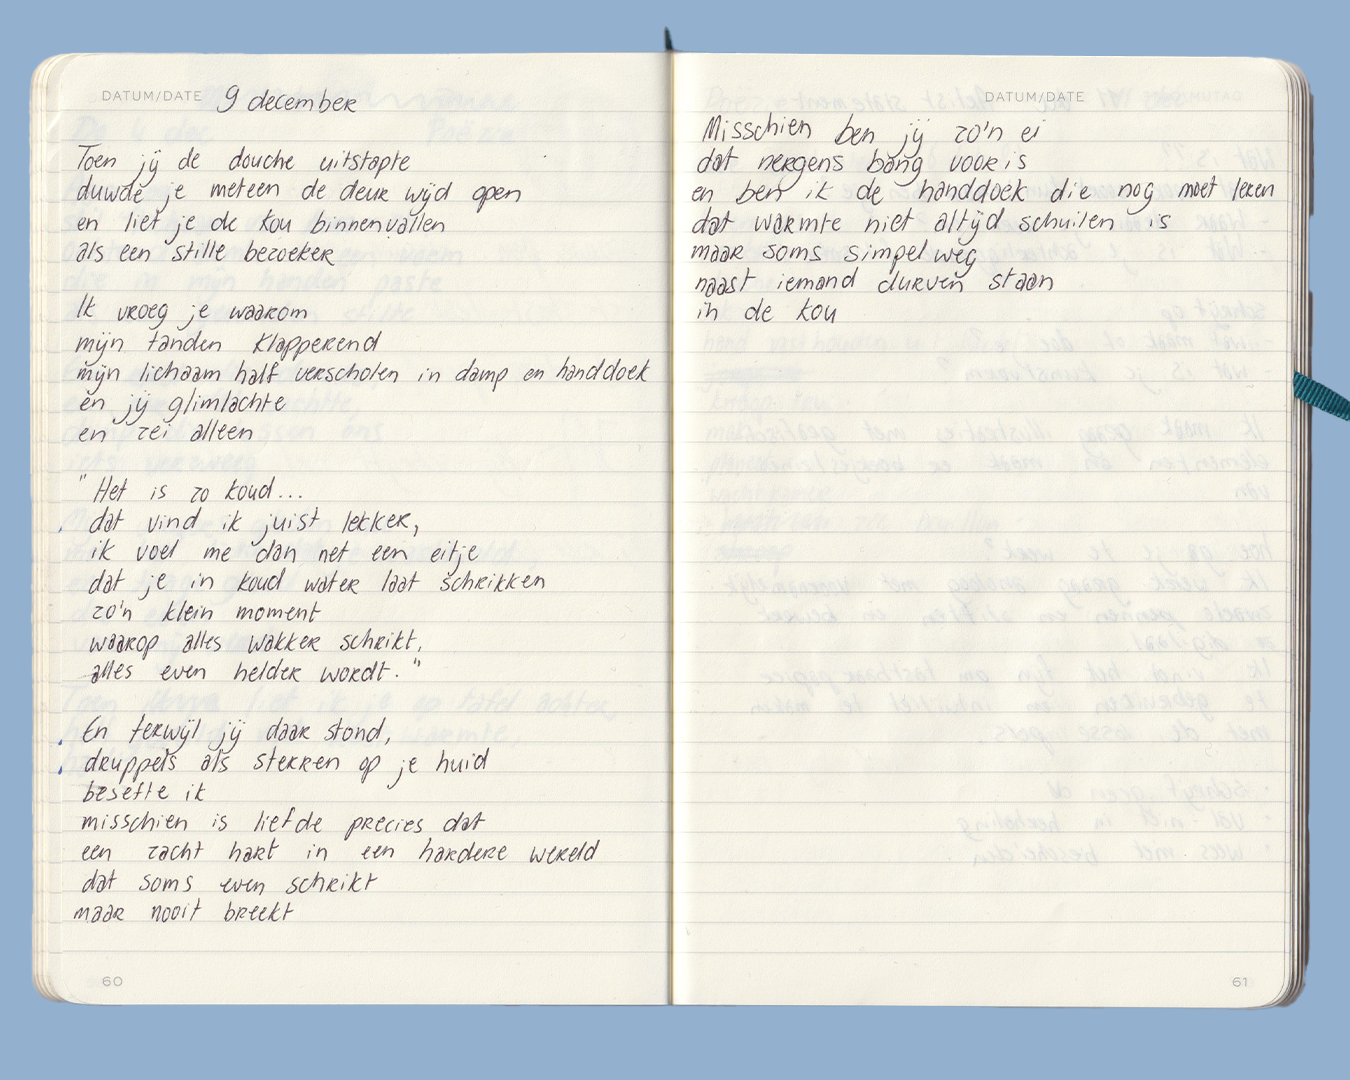 DATUM/DATE 9 december
Toen jij de douche uitstapte
duwde je meteen de deur wijd open
en liet je de kou binnenvallen
als een stille bezoeker
Ik vroeg je waarom
mijn tanden klapperend
mijn lichaam half verscholen in damp en handdoek
en jij glimlachte
en zei alleen
"Het is zo koud...
dat vind ik juist lekker,
ik voel me dan net een eitje
dat je in koud water laat schrikken
zo'n klein moment
waarop alles wakker schrikt,
alles even helder wordt."
En terwijl jij daar stond,
druppels als sterren op je huid
besefte ik
misschien is liefde precies dat
een zacht hart in een hardere wereld
dat soms even schrikt
maar nooit breekt
60
DATUM/DATE
Misschien ben jij zo'n ei
dat nergens bang voor is
en ben ik de handdoek die nog moet leren
dat warmte niet altijd schuilen is
maar soms simpelweg
naast iemand durven staan
in de kou
61